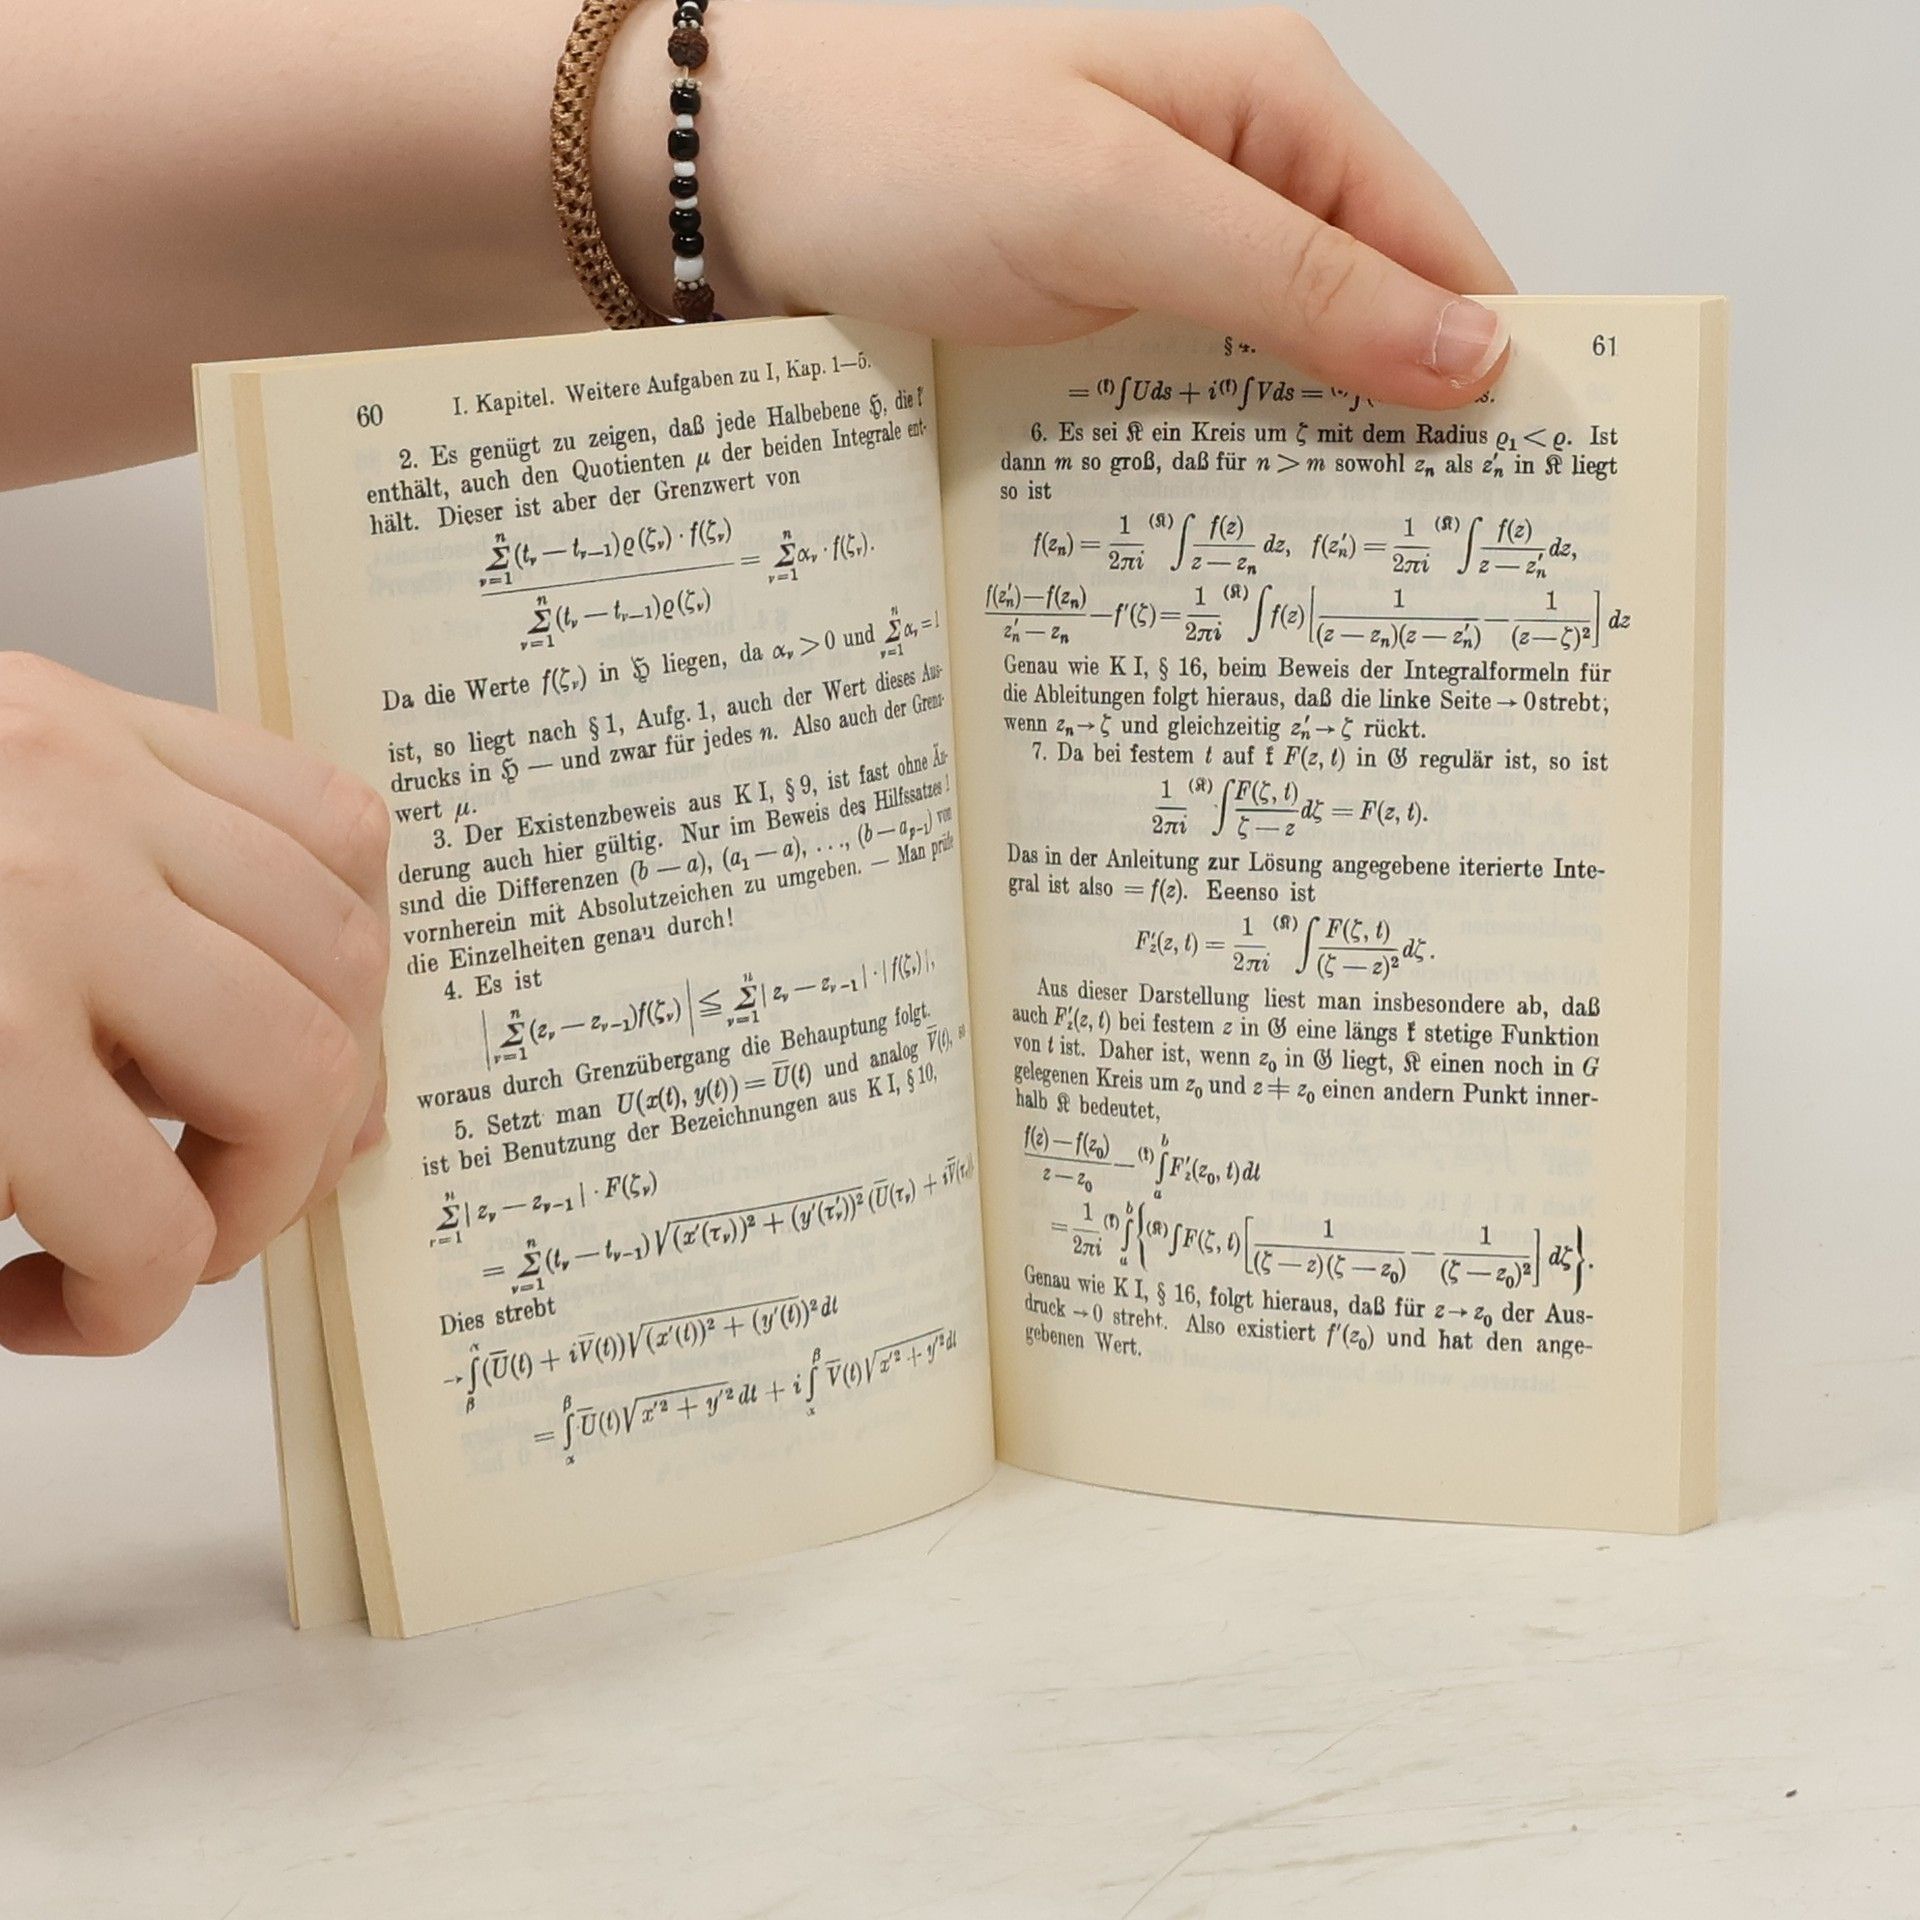 60 I. Kapitel. Weitere Aufgaben zu I, Kap. 1—5.
2. Es genügt zu zeigen, daß jede Halbebene ℌ, die f
enthält, auch den Quotienten μ der beiden Integrale ent-
hält. Dieser ist aber der Grenzwert von
n∑ν=1 (tν — tν—1) ϱ(ζν) · f(ζν) / n∑ν=1 (tν — tν—1) ϱ(ζν) = n∑ν=1 αν · f(ζν).
Da die Werte f(ζν) in ℌ liegen, da αν > 0 und n∑ν=1 αν = 1
ist, so liegt nach § 1, Aufg. 1, auch der Wert dieses Aus-
drucks in ℌ — und zwar für jedes n. Also auch der Grenz-
wert μ.
3. Der Existenzbeweis aus K I, § 9, ist fast ohne Än-
derung auch hier gültig. Nur im Beweis des Hilfssatzes 1
sind die Differenzen (b — a), (a₁ — a), ..., (b — aₚ₋₁) von
vornherein mit Absolutzeichen zu umgeben. — Man prüfe
die Einzelheiten genau durch!
4. Es ist
| n∑ν=1 (zν — zν—1) f(ζν) | ≦ n∑ν=1 | zν — zν—1 | · | f(ζν) |,
woraus durch Grenzübergang die Behauptung folgt.
5. Setzt man U(x(t), y(t)) = U̅(t) und analog V̅(t), so
ist bei Benutzung der Bezeichnungen aus K I, § 10,
n∑ν=1 | zν — zν—1 | · F(ζν)
= n∑ν=1 (tν — tν—1) √(x′(τν))² + (y′(τ′ν))² (U̅(τν) + iV̅(τ
Dies strebt
→ α∫β (U̅(t) + iV̅(t)) √(x′(t))² + (y′(t))² dt
= β∫α U̅(t) √x′² + y′² dt + i β∫α V̅(t) √x′² + y′² dt
§ 4. 61
= (𝔨)∫ U ds + i (𝔨)∫ V ds =
6. Es sei 𝔎 ein Kreis um ζ mit dem Radius ϱ₁ < ϱ. Ist
dann m so groß, daß für n > m sowohl zₙ als z′ₙ in 𝔎 liegt
so ist
f(zₙ) = 1/2πi (𝔎)∫ f(z)/(z — zₙ) dz, f(z′ₙ) = 1/2πi (𝔎)∫ f(z)/(z — z′ₙ) dz,
(f(z′ₙ) — f(zₙ))/(z′ₙ — zₙ) — f′(ζ) = 1/2πi (𝔎)∫ f(z) [1/((z — zₙ)(z — z′ₙ)) — 1/(z — ζ)²] dz
Genau wie K I, § 16, beim Beweis der Integralformeln für
die Ableitungen folgt hieraus, daß die linke Seite → 0 strebt,
wenn zₙ → ζ und gleichzeitig z′ₙ → ζ rückt.
7. Da bei festem t auf 𝔨 F(z, t) in 𝔊 regulär ist, so ist
1/2πi (𝔎)∫ F(ζ, t)/(ζ — z) dζ = F(z, t).
Das in der Anleitung zur Lösung angegebene iterierte Inte-
gral ist also = f(z). Eeenso ist
F′z(z, t) = 1/2πi (𝔎)∫ F(ζ, t)/(ζ — z)² dζ.
Aus dieser Darstellung liest man insbesondere ab, daß
auch F′z(z, t) bei festem z in 𝔊 eine längs 𝔨 stetige Funktion
von t ist. Daher ist, wenn z₀ in 𝔊 liegt, 𝔎 einen noch in G
gelegenen Kreis um z₀ und z ≠ z₀ einen andern Punkt inner-
halb 𝔎 bedeutet,
(f(z) — f(z₀))/(z — z₀) — (𝔨) b∫a F′z(z₀, t) dt
= 1/2πi (𝔨) b∫a {(𝔎)∫ F(ζ, t) [1/((ζ — z)(ζ — z₀)) — 1/(ζ — z₀)²] dζ}.
Genau wie K I, § 16, folgt hieraus, daß für z → z₀ der Aus-
druck → 0 strebt. Also existiert f′(z₀) und hat den ange-
gebenen Wert.